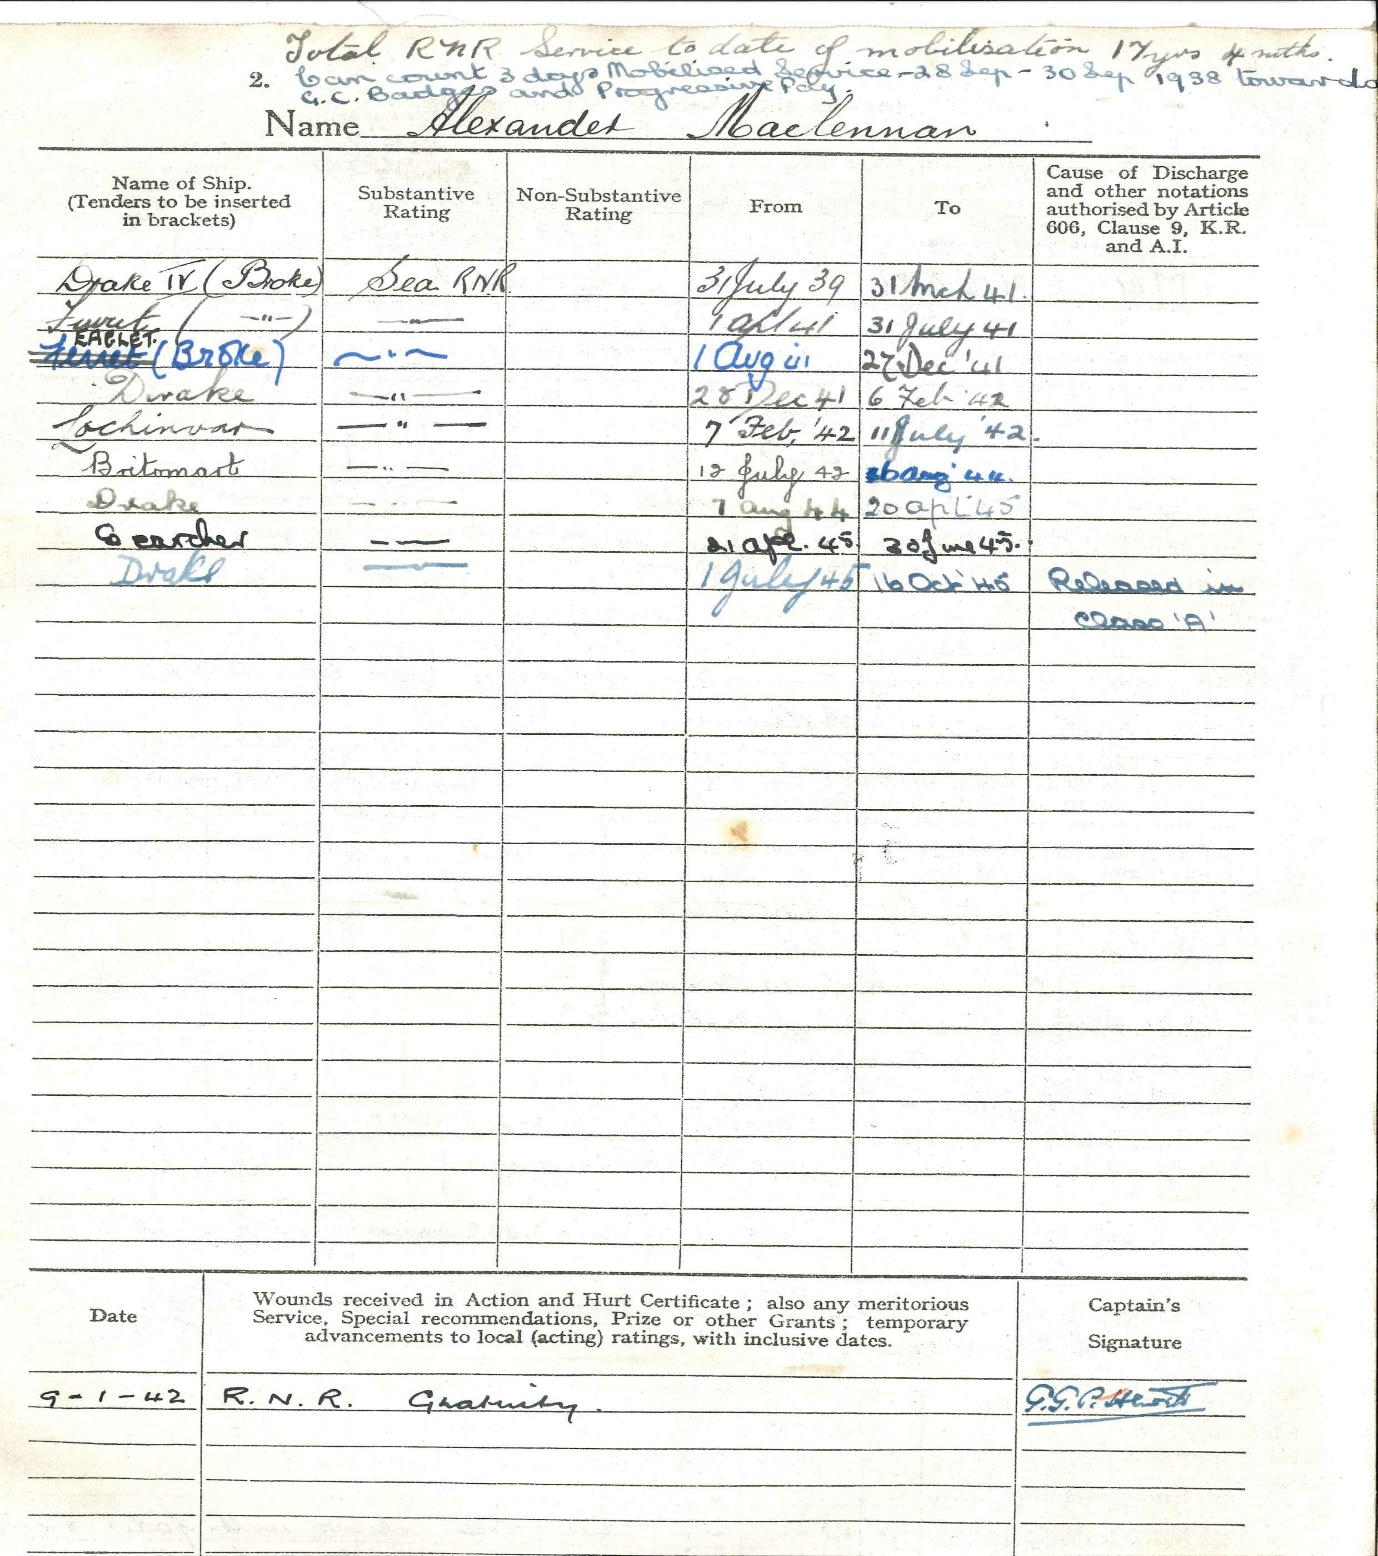 Total RNR Service to date of mobilisation 17 yrs 4 mths.
2. Can count 3 days Mobilised Service - 28 Sep - 30 Sep 1938 towards
G.C. Badges and Progressive Pay.
Name Alexander Maclennan
Name of Ship. (Tenders to be inserted in brackets) Substantive Rating Non-Substantive Rating From To Cause of Discharge and other notations authorised by Article 606, Clause 9, K.R. and A.I.
Drake IV (Broke) Sea. RNR 31 July 39 31 Mch 41.
Ferret ( —"—) —"— 1 apl 41 31 July 41
EAGLET.
Ferret (Broke) —"— 1 Aug 41 27 Dec '41
Drake —"— 28 Dec 41 6 Feb '42
Lochinvar —"— 7 Feb, '42 11 July '42.
Britomart —"— 12 July 42 6 aug '44.
Drake —"— 7 aug 44 20 apl 45
Searcher —— 21 apl. 45 30 June 45.
Drake —— 1 July 45 16 Oct '45 Released in
Class 'A'
Date Wounds received in Action and Hurt Certificate ; also any meritorious Service, Special recommendations, Prize or other Grants ; temporary advancements to local (acting) ratings, with inclusive dates. Captain's Signature
9-1-42 R.N.R. Gratuity.